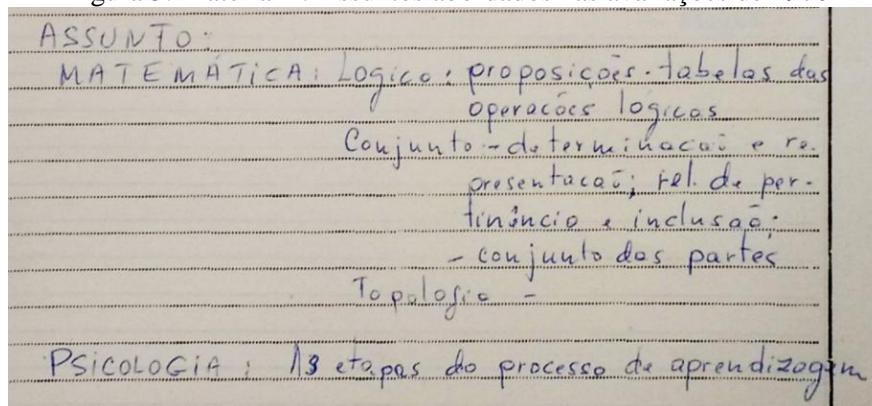 ASSUNTO:
MATEMÁTICA: Logica: proposições. tabelas das
operações logicas
Conjunto - determinação e re-
presentação; rel. de per-
tinência e inclusão;
- conjunto das partes
Topologia -
PSICOLOGIA: As etapas do processo de aprendizagem